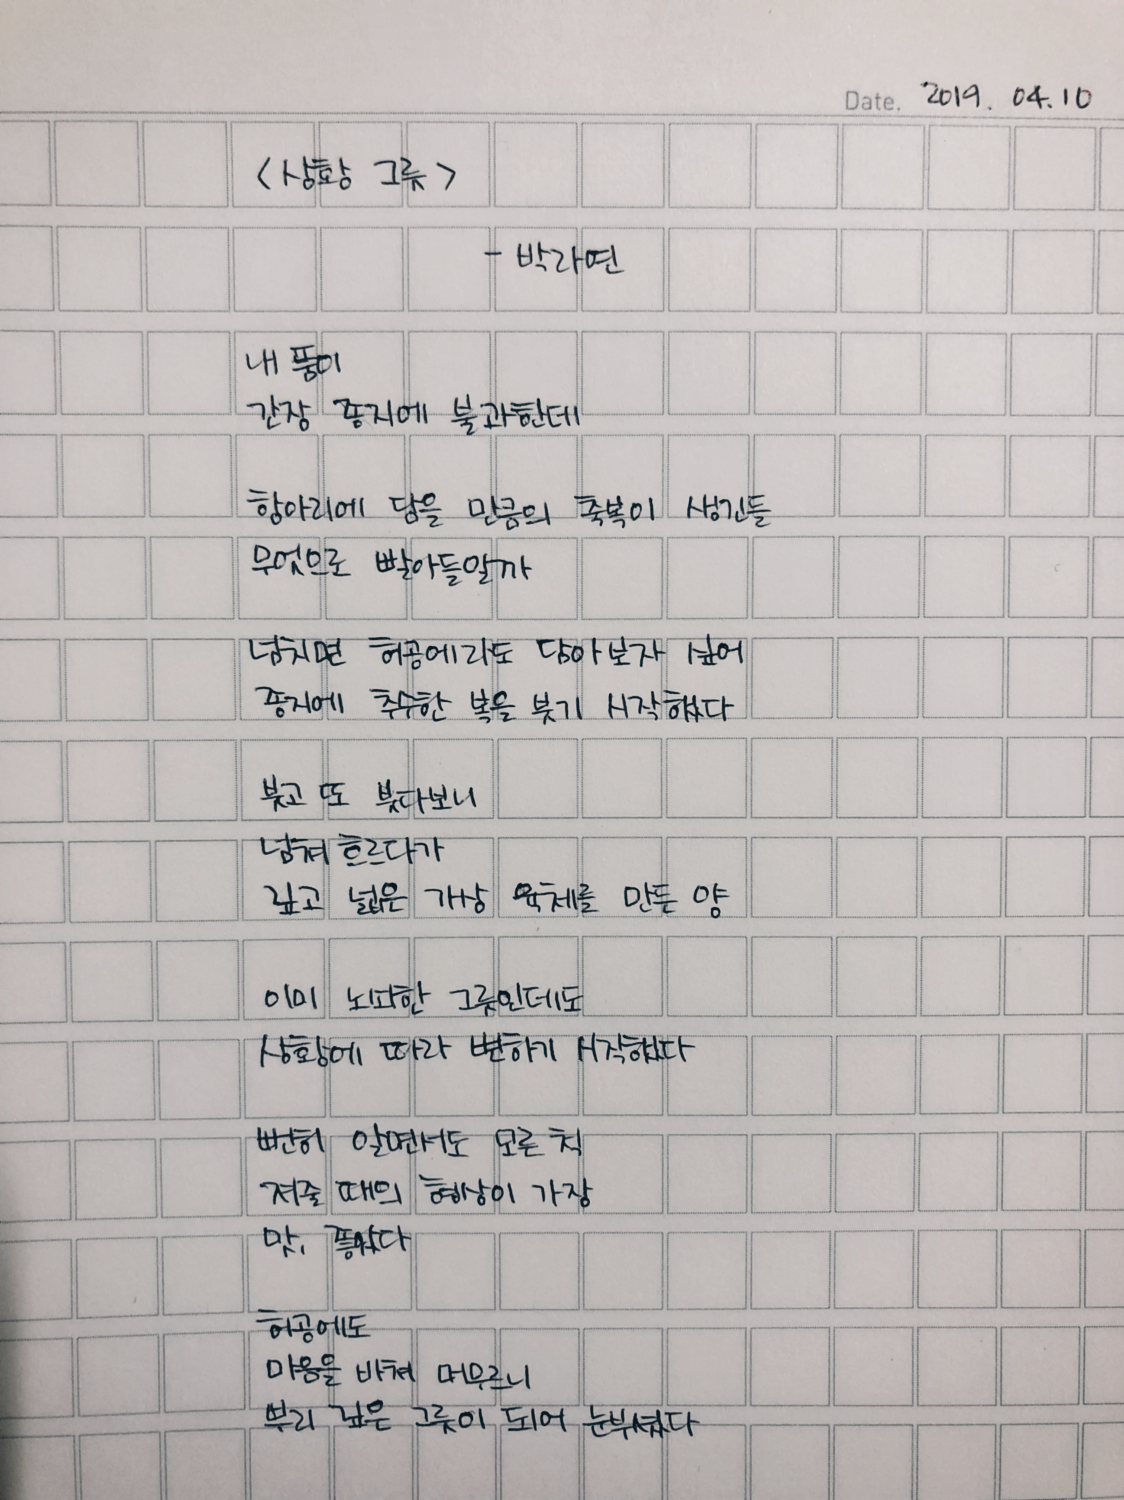 Date. 2019. 04. 10
<상황 그릇>
- 박라연
내 품이
간장 종지에 불과한데
항아리에 담을 만큼의 축복이 생긴들
무엇으로 빨아들일까
넘치면 허공에라도 담아보자 싶어
종지에 추수한 복을 붓기 시작했다
붓고 또 붓다보니
넘쳐 흐르다가
깊고 넓은 가상 육체를 만든 양
이미 노쇠한 그릇인데도
상황에 따라 변하기 시작했다
뻔히 알면서도 모른 척
져줄 때의 형상이 가장
맛, 좋았다
허공에도
마음을 바쳐 머무르니
뿌리 깊은 그릇이 되어 눈부셨다